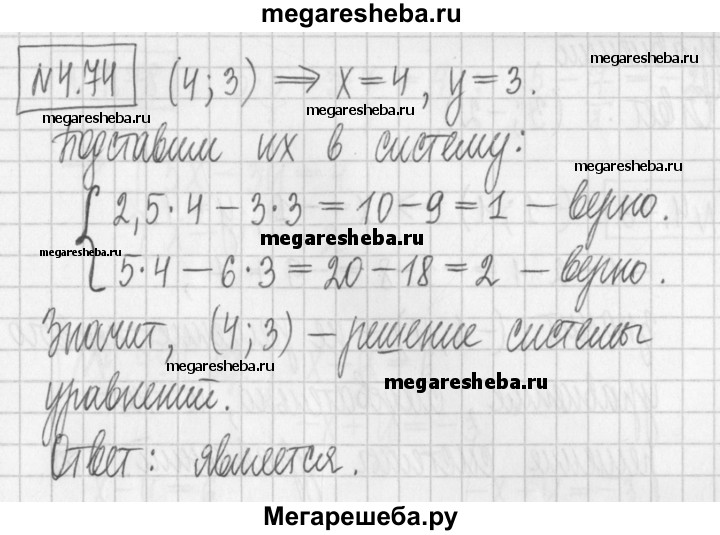 megaresheba.ru
megaresheba.ru
№4.74 (4;3) ⟹ x=4, y=3.
megaresheba.ru megaresheba.ru
Подставим их в систему:
megaresheba.ru
2,5·4 − 3·3 = 10 − 9 = 1 – верно.
megaresheba.ru
megaresheba.ru
5·4 − 6·3 = 20 − 18 = 2 – верно.
Значит, (4;3) – решение системы
megaresheba.ru
megaresheba.ru
уравнений.
megaresheba.ru megaresheba.ru
Ответ: является.
Мегарешеба.ру